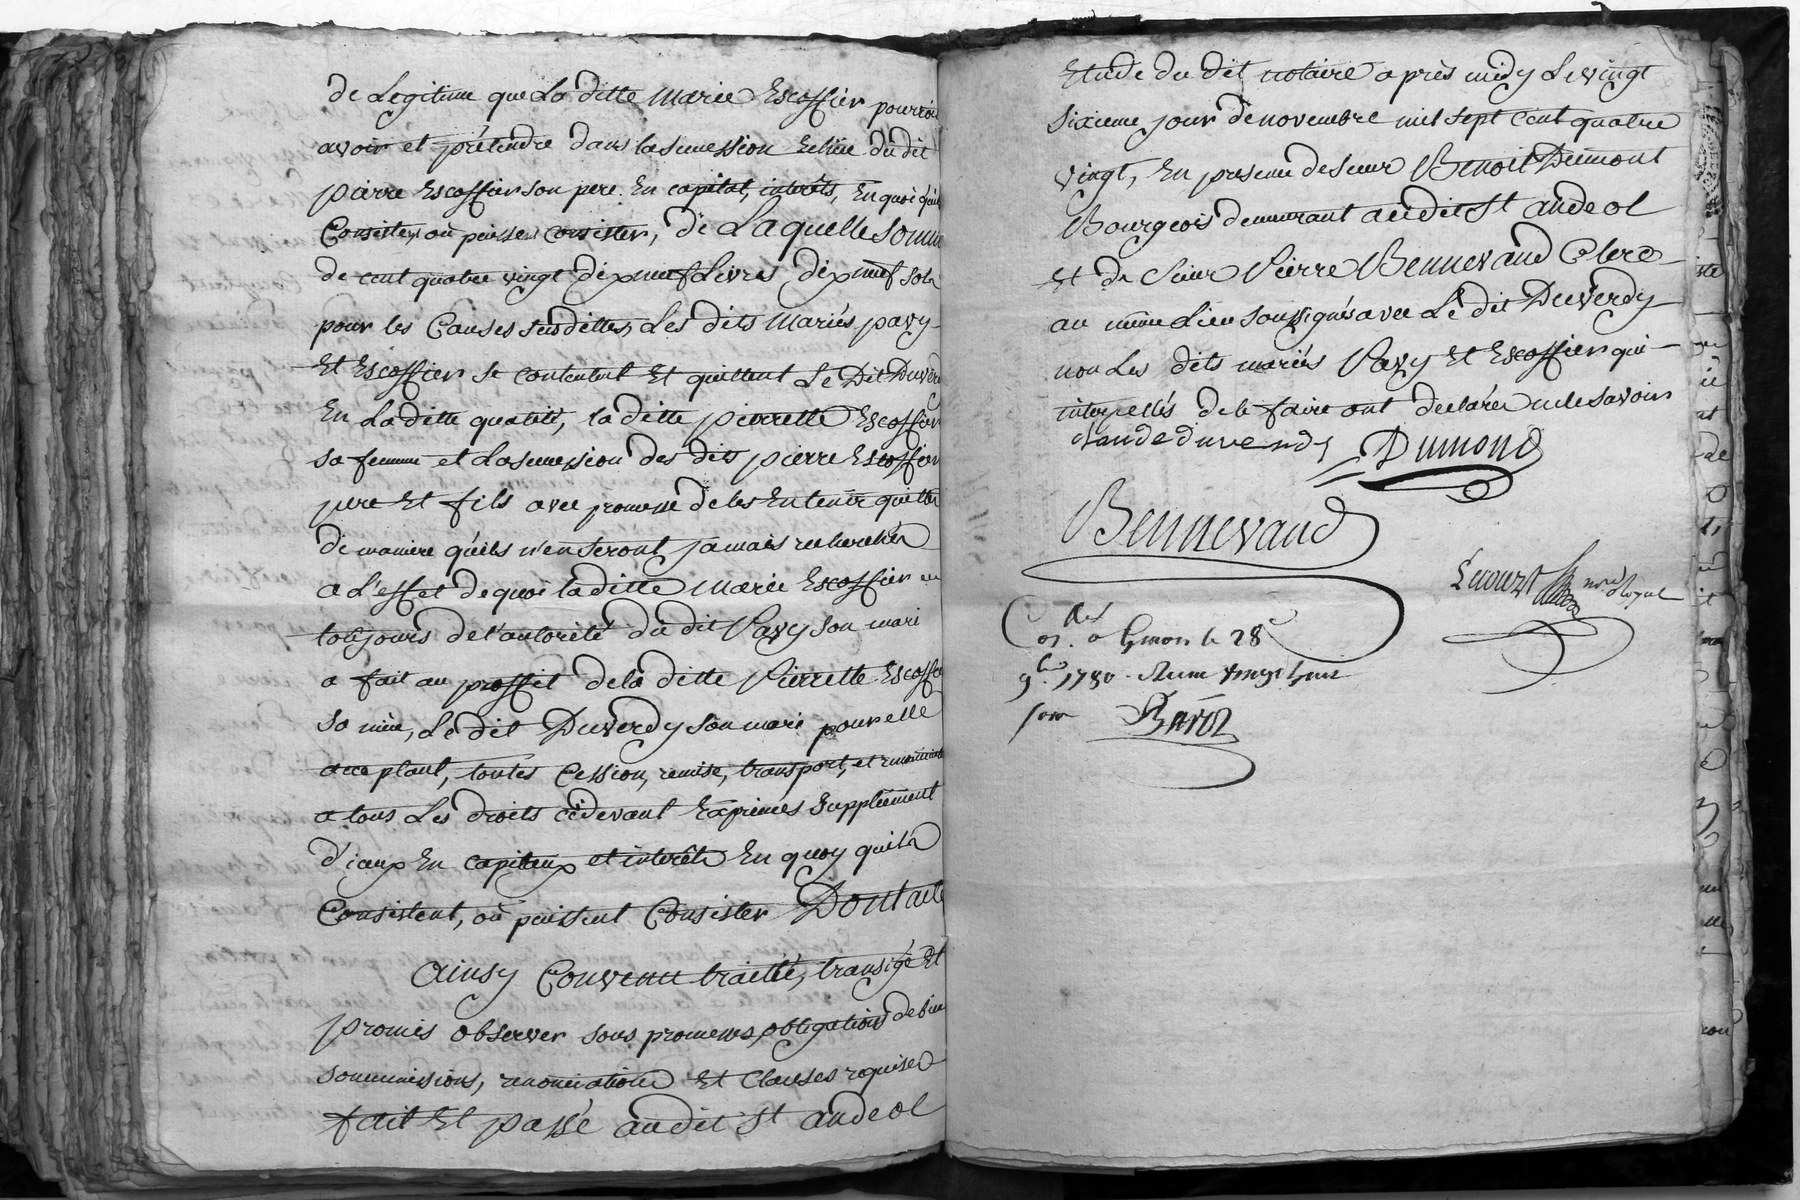 de Légitime que La ditte Marie Escoffier pourroit
avoir et prétendre dans la succession Echüe du dit
pierre Escoffier son pere. En capital, interêts, En quoi quils
Consistent ou puissent consister, de Laquelle somme
de cent quatre vingt dixneuf Livres dixneuf sols
pour les Causes susdittes, Les dits Mariés pavy
Et Escoffier se contentent Et quittent Le Dit Duverdy
En La ditte qualité, la ditte pierrette Escoffier
sa femme et La succession des dits pierre Escoffier
pere Et fils avec promesse de les En tenir quittes
de maniere quils n'en seront jamais recherchés
a L'effet de quoi la ditte Marie Escoffier
toujours de l'autorité du dit Pavy son mari
a fait au proffit de la ditte Pierrette Escoffier
sa , Le dit Duverdy son mari pour elle
acceptant, toutes Cession, remise, transport, et renonciation
a tous Les droits cidevant Exprimés Supplement
d'iceux En capitaux et interêts En quoy quils
Consistent, ou puissent Consister Dont acte
Ainsy Convenu traitté, transigé Et
promis observer sous promesses, obligations de biens
soummissions, renonciations Et Clauses requises
fait Et passé audit St andeol
Etude du dit notaire après midy Le vingt
sixieme jour de novembre mil sept cent quatre
vingt, En presence de sieur Benoit Dumont
Bourgeois demeurant audit St andeol
Et de sieur Pierre Bennevand Clerc
au même Lieu soussignés avec Le dit Duverdy
non Les dits mariés Pavy Et Escoffier qui
interpellés de le faire ont declaré ne le savoir
Claude duverdy Dumond
Bennevand
nore Royal
a le 28
9bre 1780